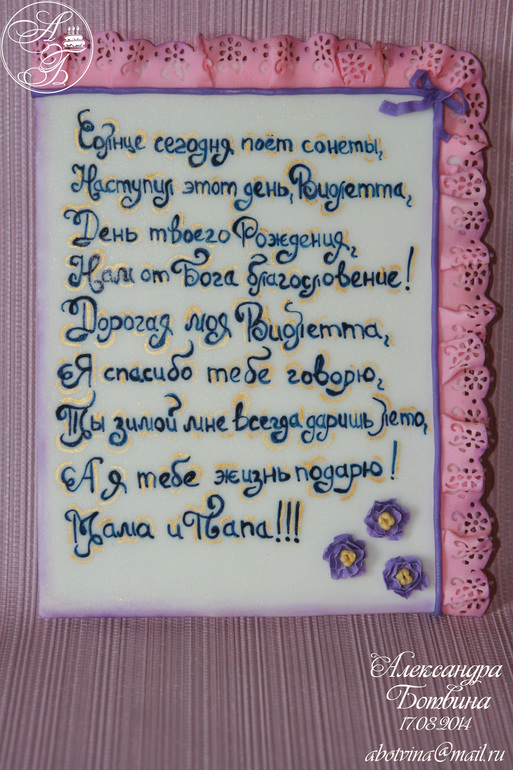 АБ
Солнце сегодня поёт сонеты,
Наступил этот день, Виолетта,
День твоего Рождения,
Нам от Бога благословение!
Дорогая моя Виолетта,
Я спасибо тебе говорю,
Ты зимой мне всегда даришь лето,
А я тебе жизнь подарю!
Мама и Папа!!!
Александра
Ботвина
17.08.2014
abotvina@mail.ru